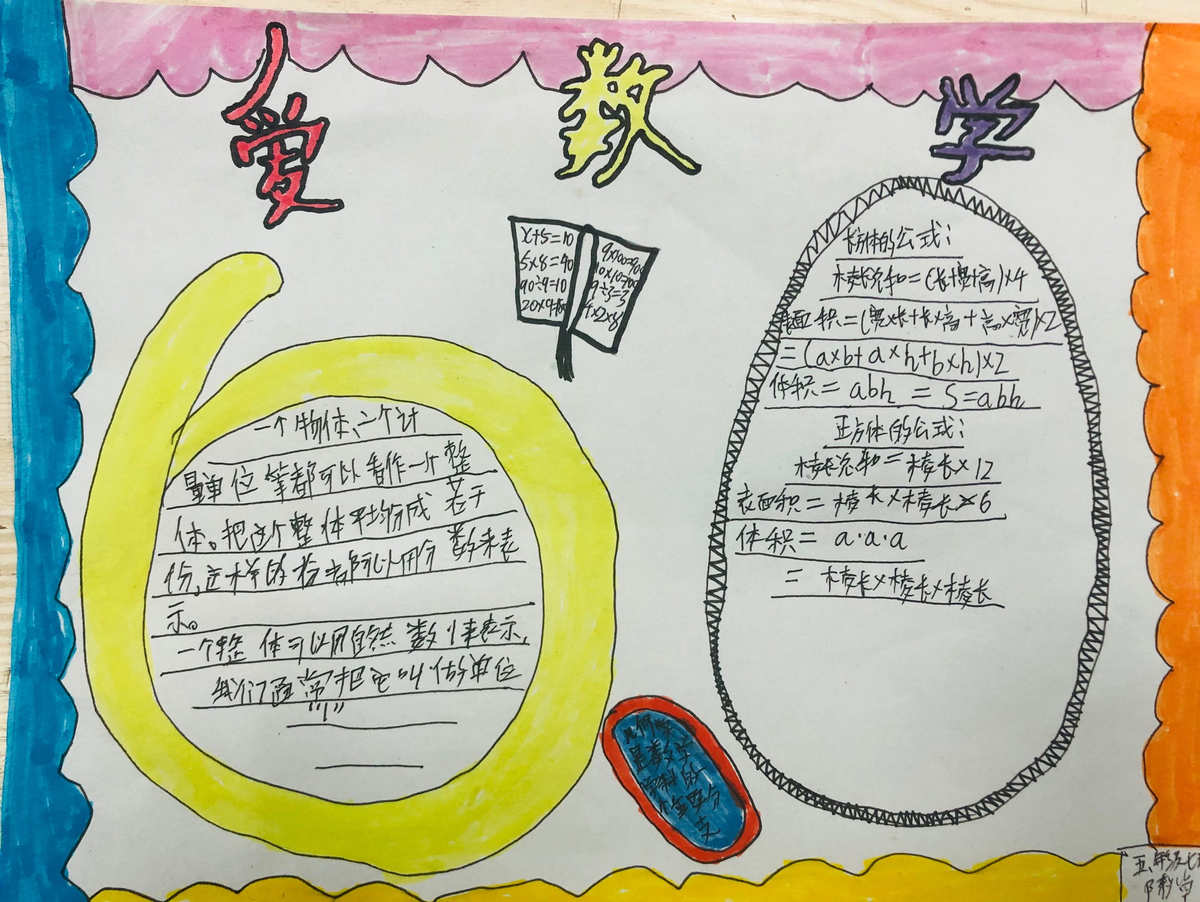 爱 数 学
x+5=10
5×8=40
90÷9=10
9×100=900
一个物体、一个计
量单位等都可以看作一个整
体。把这个整体平均分成若干
份,这样的 都可以用分数来表
示。
一个整体可以用自然数1来表示,
我们通常把它叫做单位
"1"
长方体的公式:
棱长总和=(长+宽+高)×4
表面积=(宽×长+长×高+高×宽)×2
=(a×b+a×h+b×h)×2
体积=abh=S=abh
正方体的公式:
棱长总和=棱长×12
表面积=棱长×棱长×6
体积=a·a·a
=棱长×棱长×棱长
几何学
是数学
学科的
分
支
五年级七